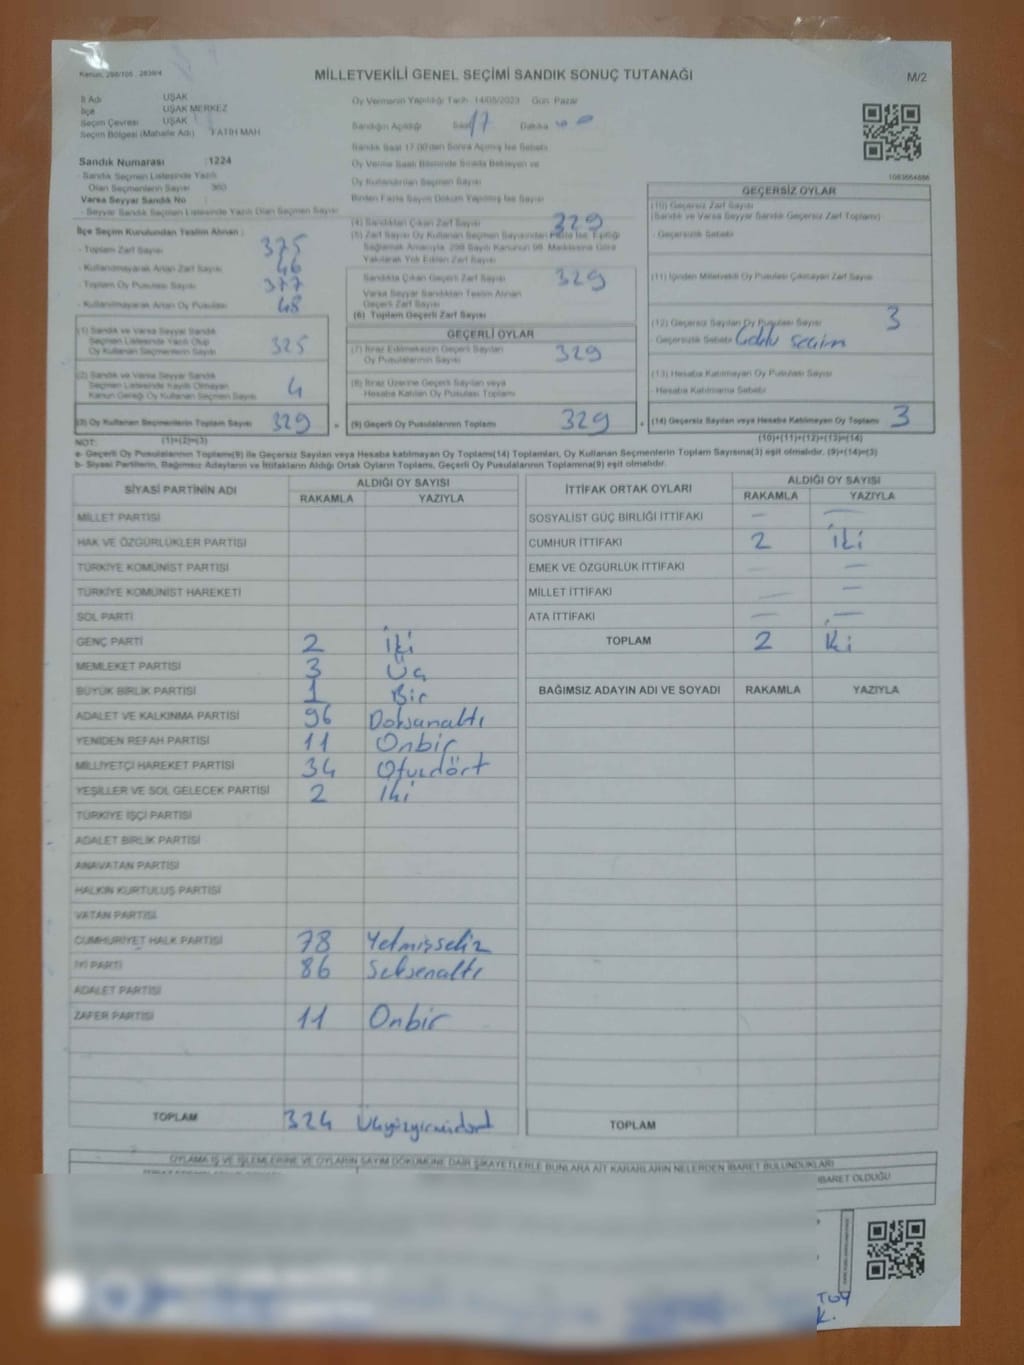 Kanun, 298/105 , 2839/4
MİLLETVEKİLİ GENEL SEÇİMİ SANDIK SONUÇ TUTANAĞI
M/2
İl Adı UŞAK
İlçe UŞAK MERKEZ
Seçim Çevresi UŞAK
Seçim Bölgesi (Mahalle Adı) FATİH MAH
Sandık Numarası :1224
- Sandık Seçmen Listesinde Yazılı
Olan Seçmenlerin Sayısı 360
Varsa Seyyar Sandık No
- Seyyar Sandık Seçmen Listesinde Yazılı Olan Seçmen Sayısı
İlçe Seçim Kurulundan Teslim Alınan :
- Toplam Zarf Sayısı 375
- Kullanılmayarak Artan Zarf Sayısı 46
- Toplam Oy Pusulası Sayısı 377
- Kullanılmayarak Artan Oy Pusulası 48
(1) Sandık ve Varsa Seyyar Sandık
Seçmen Listesinde Yazılı Olup
Oy Kullanan Seçmenlerin Sayısı 325
(2) Sandık ve Varsa Seyyar Sandık
Seçmen Listesinde Kayıtlı Olmayan
Kanun Gereği Oy Kullanan Seçmen Sayısı 4
(3) Oy Kullanan Seçmenlerin Toplam Sayısı 329
Oy Vermenin Yapıldığı Tarih 14/05/2023 Gün Pazar
Sandığın Açıldığı Saat 17 Dakika 00
Sandık Saat 17:00'den Sonra Açılmış İse Sebebi
Oy Verme Saati Bitiminde Sırada Bekleyen ve
Oy Kullandırılan Seçmen Sayısı
Birden Fazla Sayım Döküm Yapılmış İse Sayısı
(4) Sandıktan Çıkan Zarf Sayısı 329
(5) Zarf Sayısı Oy Kullanan Seçmen Sayısından Fazla İse, Eşitliği
Sağlamak Amacıyla, 298 Sayılı Kanunun 98. Maddesine Göre
Yakılarak Yok Edilen Zarf Sayısı
Sandıkta Çıkan Geçerli Zarf Sayısı 329
Varsa Seyyar Sandıktan Teslim Alınan
Geçerli Zarf Sayısı
(6) Toplam Geçerli Zarf Sayısı
GEÇERLİ OYLAR
(7) İtiraz Edilmeksizin Geçerli Sayılan
Oy Pusulalarının Sayısı 329
(8) İtiraz Üzerine Geçerli Sayılan veya
Hesaba Katılan Oy Pusulası Toplamı
(9) Geçerli Oy Pusulalarının Toplamı 329
1083664886
GEÇERSİZ OYLAR
(10) Geçersiz Zarf Sayısı
(Sandık ve Varsa Seyyar Sandık Geçersiz Zarf Toplamı)
- Geçersizlik Sebebi
(11) İçinden Milletvekili Oy Pusulası Çıkmayan Zarf Sayısı
(12) Geçersiz Sayılan Oy Pusulası Sayısı 3
Geçersizlik Sebebi Çoklu seçim
(13) Hesaba Katılmayan Oy Pusulası Sayısı
- Hesaba Katılmama Sebebi
(14) Geçersiz Sayılan veya Hesaba Katılmayan Oy Toplamı 3
NOT: (1)+(2)=(3) (10)+(11)+(12)+(13)=(14)
a- Geçerli Oy Pusulalarının Toplamı(9) ile Geçersiz Sayılan veya Hesaba Katılmayan Oy Toplamı(14) Toplamları, Oy Kullanan Seçmenlerin Toplam Sayısına(3) eşit olmalıdır. (9)+(14)=(3)
b- Siyasi Partilerin, Bağımsız Adayların ve İttifakların Aldığı Ortak Oyların Toplamı, Geçerli Oy Pusulalarının Toplamına(9) eşit olmalıdır.
SİYASİ PARTİNİN ADI ALDIĞI OY SAYISI
RAKAMLA YAZIYLA
MİLLET PARTİSİ
HAK VE ÖZGÜRLÜKLER PARTİSİ
TÜRKİYE KOMÜNİST PARTİSİ
TÜRKİYE KOMÜNİST HAREKETİ
SOL PARTİ
GENÇ PARTİ 2 İki
MEMLEKET PARTİSİ 3 Üç
BÜYÜK BİRLİK PARTİSİ 1 Bir
ADALET VE KALKINMA PARTİSİ 96 Doksanaltı
YENİDEN REFAH PARTİSİ 11 Onbir
MİLLİYETÇİ HAREKET PARTİSİ 34 Otuzdört
YEŞİLLER VE SOL GELECEK PARTİSİ 2 İki
TÜRKİYE İŞÇİ PARTİSİ
ADALET BİRLİK PARTİSİ
ANAVATAN PARTİSİ
HALKIN KURTULUŞ PARTİSİ
VATAN PARTİSİ
CUMHURİYET HALK PARTİSİ 78 Yetmişsekiz
İYİ PARTİ 86 Seksenaltı
ADALET PARTİSİ
ZAFER PARTİSİ 11 Onbir
TOPLAM 324 Üçyüzyirmidört
İTTİFAK ORTAK OYLARI ALDIĞI OY SAYISI
RAKAMLA YAZIYLA
SOSYALİST GÜÇ BİRLİĞİ İTTİFAKI — —
CUMHUR İTTİFAKI 2 İki
EMEK VE ÖZGÜRLÜK İTTİFAKI — —
MİLLET İTTİFAKI — —
ATA İTTİFAKI — —
TOPLAM 2 İki
BAĞIMSIZ ADAYIN ADI VE SOYADI RAKAMLA YAZIYLA
TOPLAM
OYLAMA İŞ VE İŞLEMLERİNE VE OYLARIN SAYIM DÖKÜMÜNE DAİR ŞİKAYETLERLE BUNLARA AİT KARARLARIN NELERDEN İBARET BULUNDUKLARI
İBARET OLDUĞU